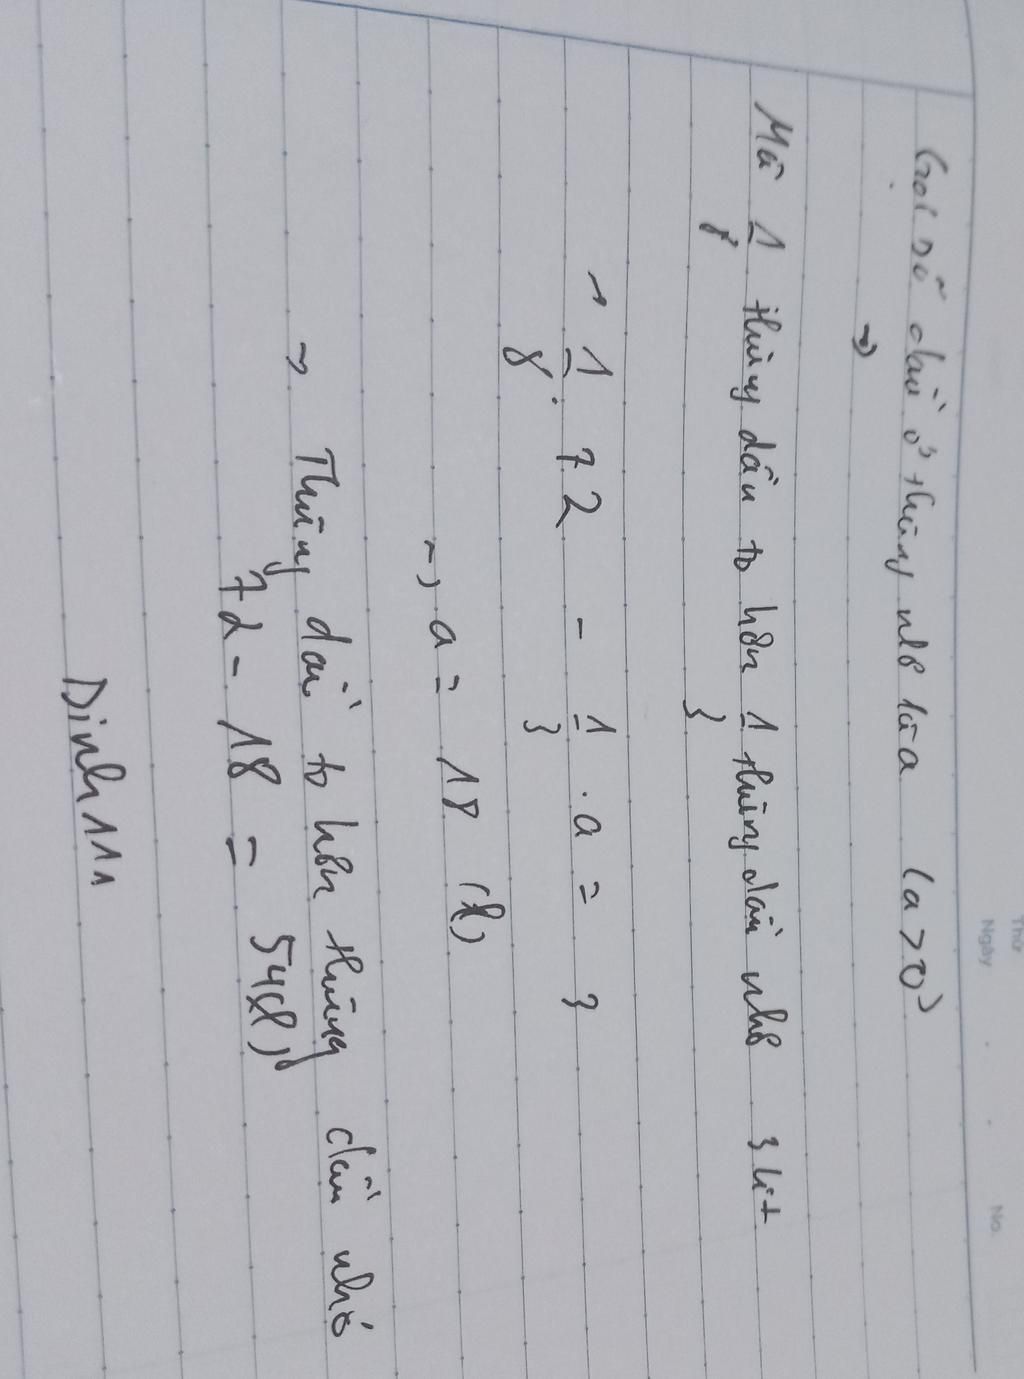 Thứ
Ngày
No.
Gọi số dầu ở thùng nhỏ là a (a > 0)
=>
Mà 1/8 thùng dầu to hơn 1/3 thùng dầu nhỏ 3 lít
→ 1/8 . 72 - 1/3 . a = 3
→ a = 18 (l)
→ Thùng dầu to hơn thùng dầu nhỏ
72 - 18 = 54 (l)
Dinh111